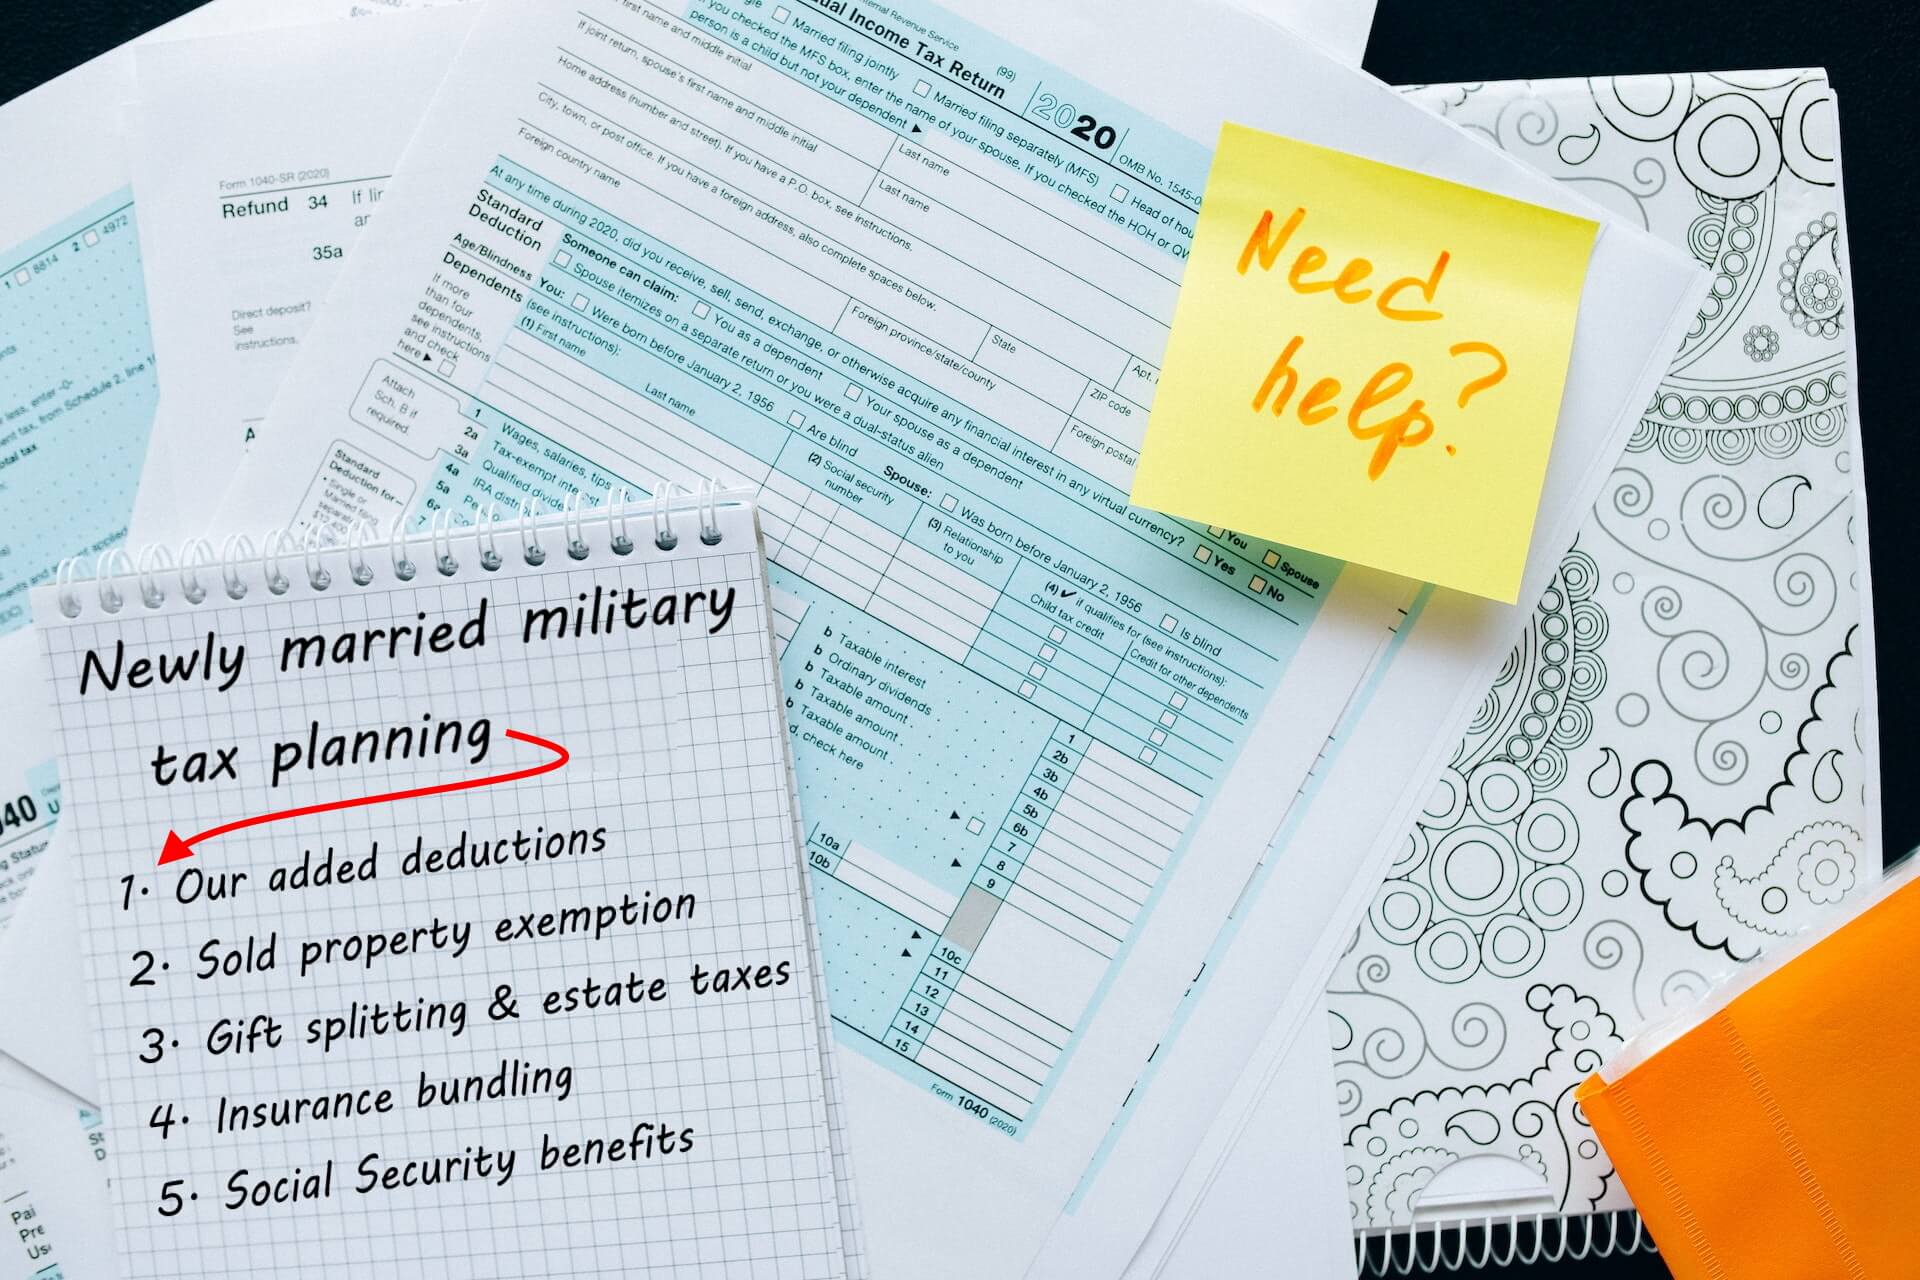 Newly married military
tax planning
1. Our added deductions
2. Sold property exemption
3. Gift splitting & estate taxes
4. Insurance bundling
5. Social Security benefits
Need
help?
Internal Revenue Service
Income Tax Return
(99)
2020
OMB No. 1545-
Married filing jointly
Married filing separately (MFS)
Head of
you checked the MFS box, enter the name of your spouse. If you checked the HOH or QW
person is a child but not your dependent ▶
first name and middle initial
Last name
If joint return, spouse's first name and middle initial
Last name
Home address (number and street). If you have a P.O. box, see instructions.
Apt.
City, town, or post office. If you have a foreign address, also complete spaces below.
State
ZIP code
Foreign country name
Foreign province/state/county
Foreign postal
At any time during 2020, did you receive, sell, send, exchange, or otherwise acquire any financial interest in any virtual currency?
Yes
No
You
Spouse
Standard
Deduction
Someone can claim:
You as a dependent
Your spouse as a dependent
Spouse itemizes on a separate return or you were a dual-status alien
Age/Blindness
You:
Were born before January 2, 1956
Are blind
Spouse:
Was born before January 2, 1956
Is blind
Dependents
(see instructions):
(1) First name
Last name
(2) Social security
number
(3) Relationship
to you
(4) ✔ if qualifies for (see instructions):
Child tax credit
Credit for other dependents
If more
than four
dependents,
see instructions
and check
here ▶
Attach
Sch. B if
required.
1
Wages, salaries, tips
2a
Tax-exempt interest
3a
Qualified
4a
IRA
5a
6a
7
b Taxable interest
b Ordinary dividends
b Taxable amount
b Taxable amount
b Taxable amount
check here
1
2b
3b
4b
5b
6b
7
8
9
10a
10b
10c
11
12
13
14
15
Form 1040 (2020)
Standard
Deduction for—
• Single or
Married filing
Form 1040-SR (2020)
Refund 34
35a
Direct deposit?
See
instructions.
1
8814
2
4972
less, enter -0-
from Schedule 2, line